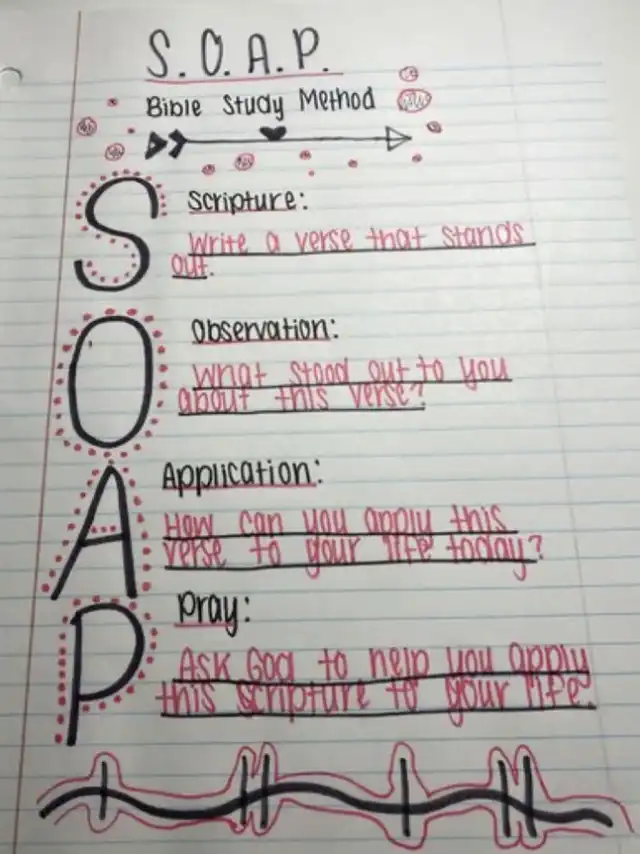 S.O.A.P.
Bible Study Method
S
Scripture:
Write a verse that stands
out.
O
Observation:
What stood out to you
about this verse?
A
Application:
How can you apply this
verse to your life today?
P
Pray:
Ask God to help you apply
this scripture to your life.